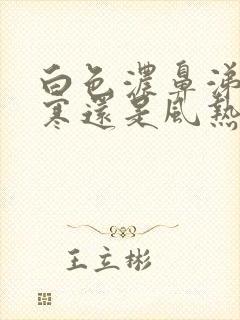 白色濃鼻涕
寒還是風熱
王立彬